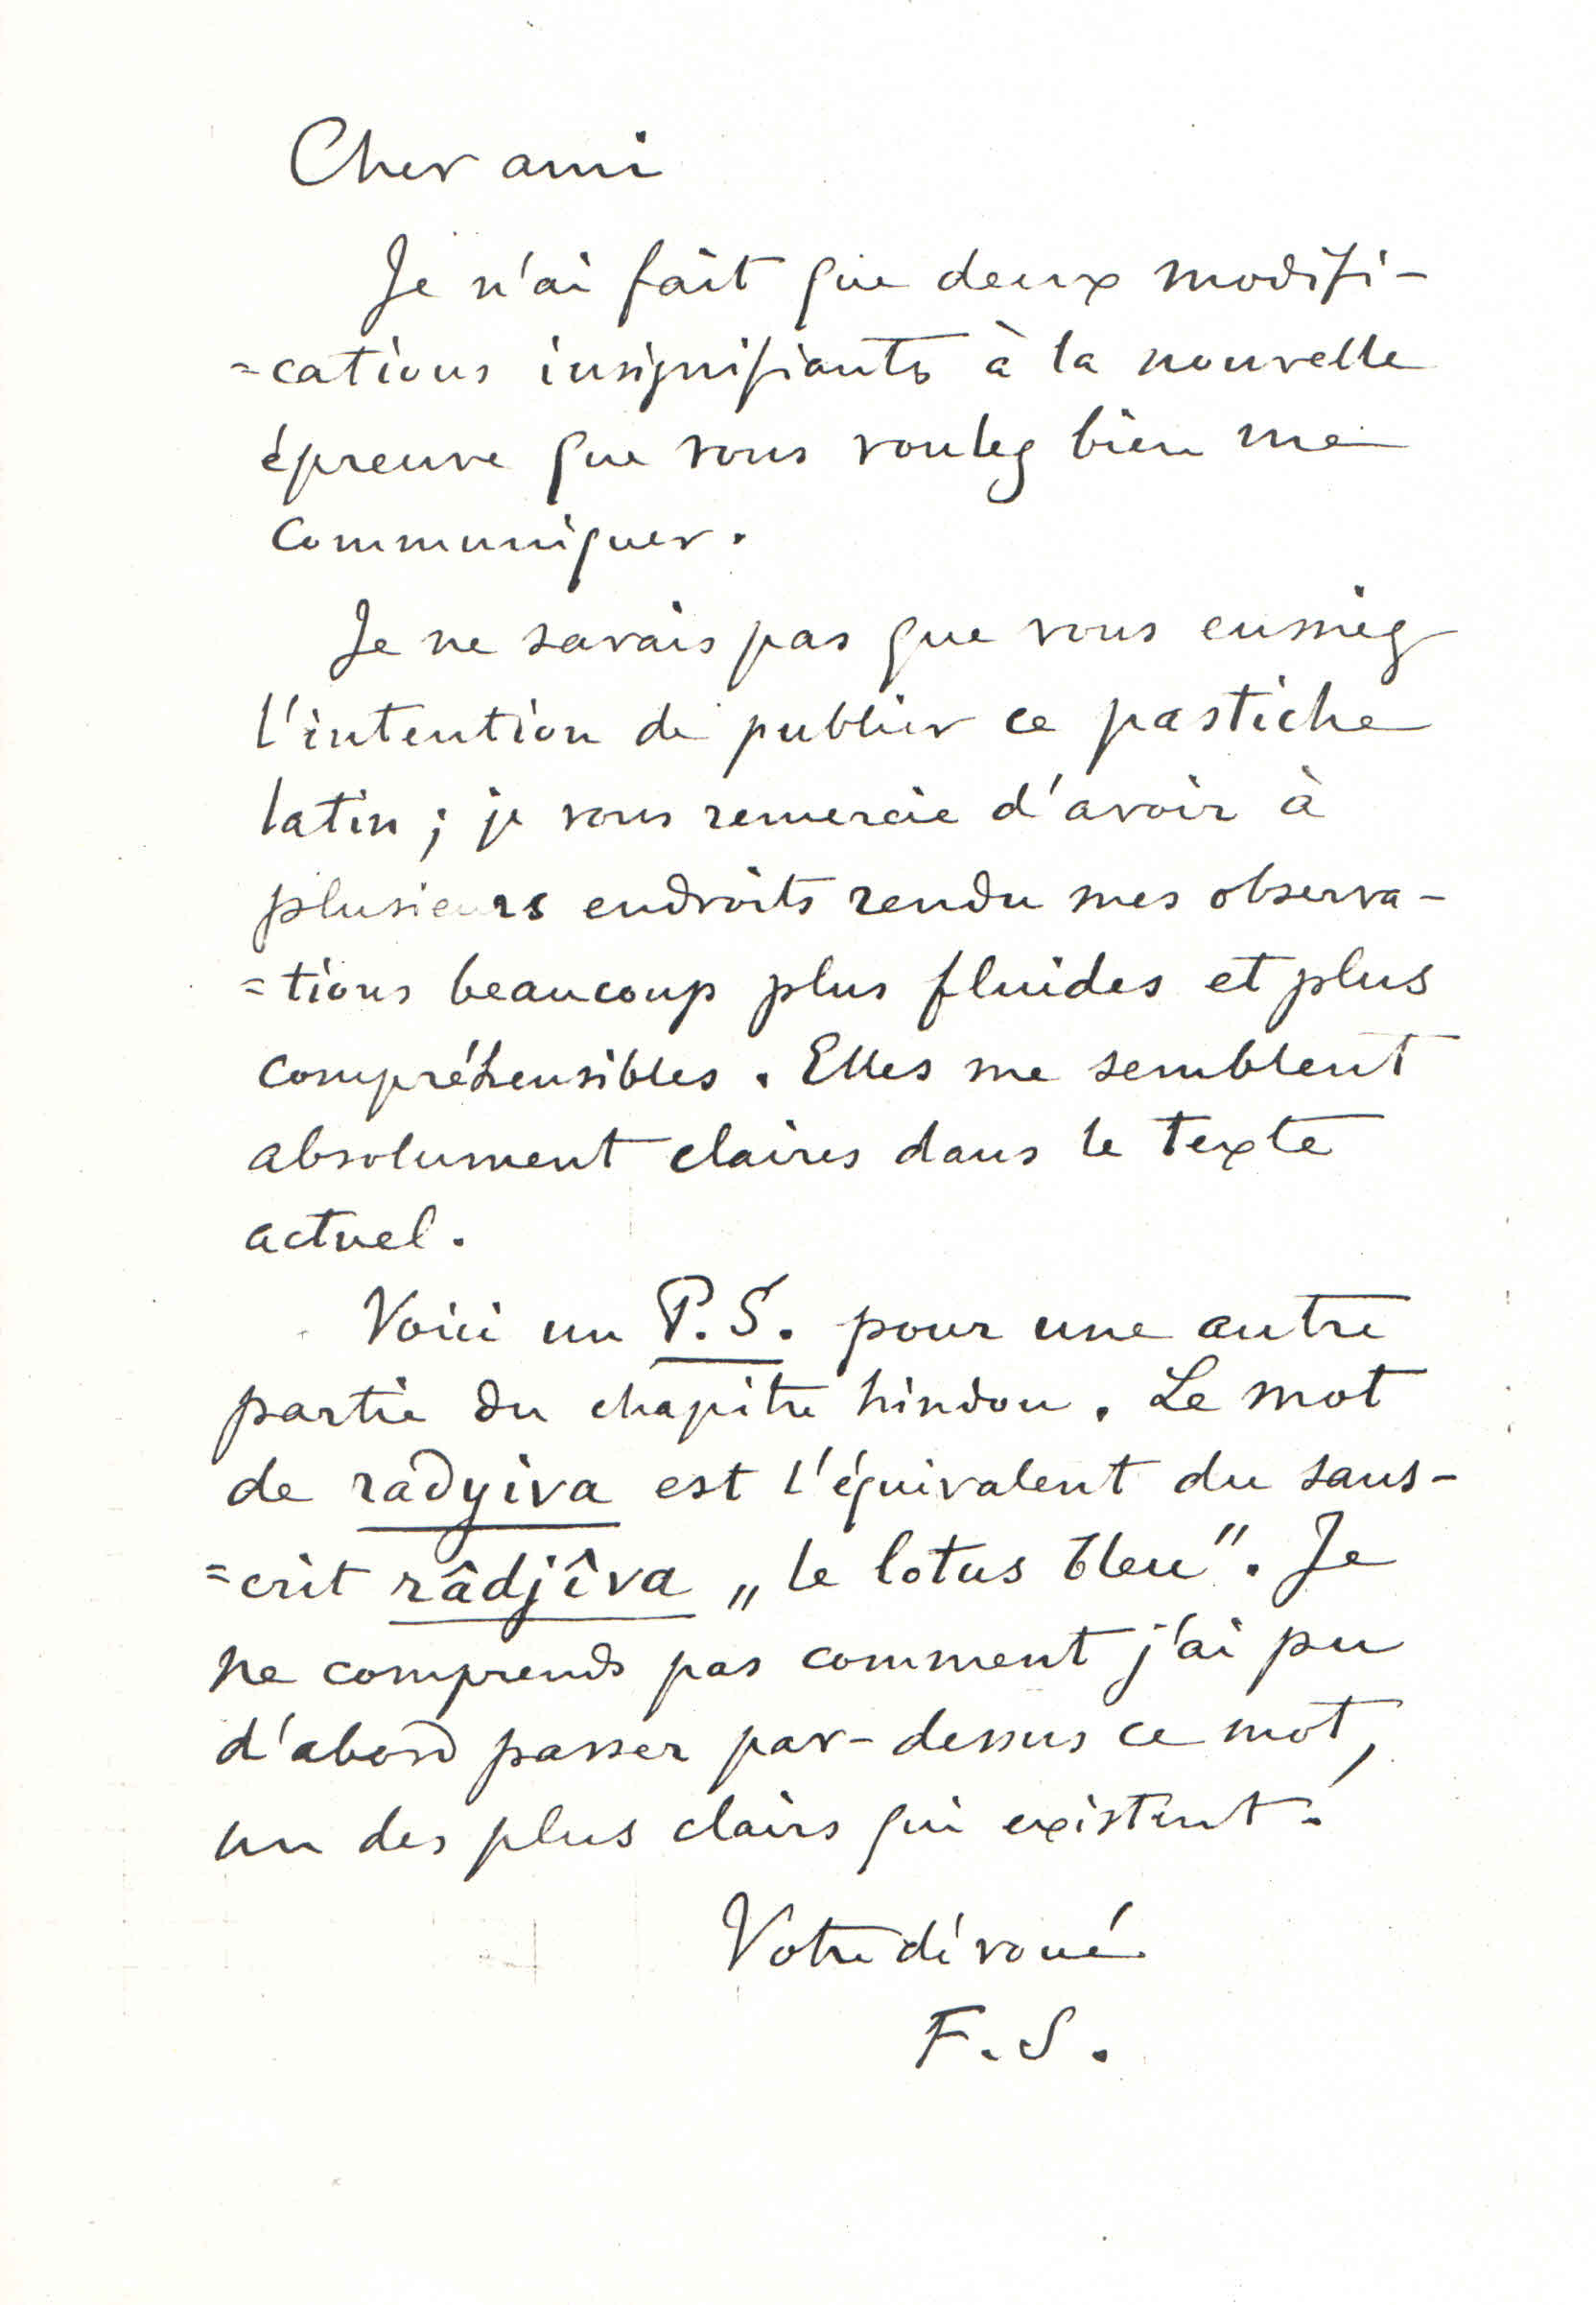 Cher ami
Je n'ai fait que deux modifi-
=cations insignifiants à la nouvelle
épreuve que vous voulez bien me
communiquer.
Je ne savais pas que vous eussiez
l'intention de publier ce pastiche
latin ; je vous remercie d'avoir à
plusieurs endroits rendu mes observa-
=tions beaucoup plus fluides et plus
compréhensibles. Elles me semblent
absolument claires dans le texte
actuel.
Voici un P.S. pour une autre
partie du chapitre hindou. Le mot
de radyiva est l'équivalent du sans-
=crit râdjîva „le lotus bleu". Je
ne comprends pas comment j'ai pu
d'abord passer par-dessus ce mot,
un des plus clairs qui existent!
Votre dévoué
F. S.